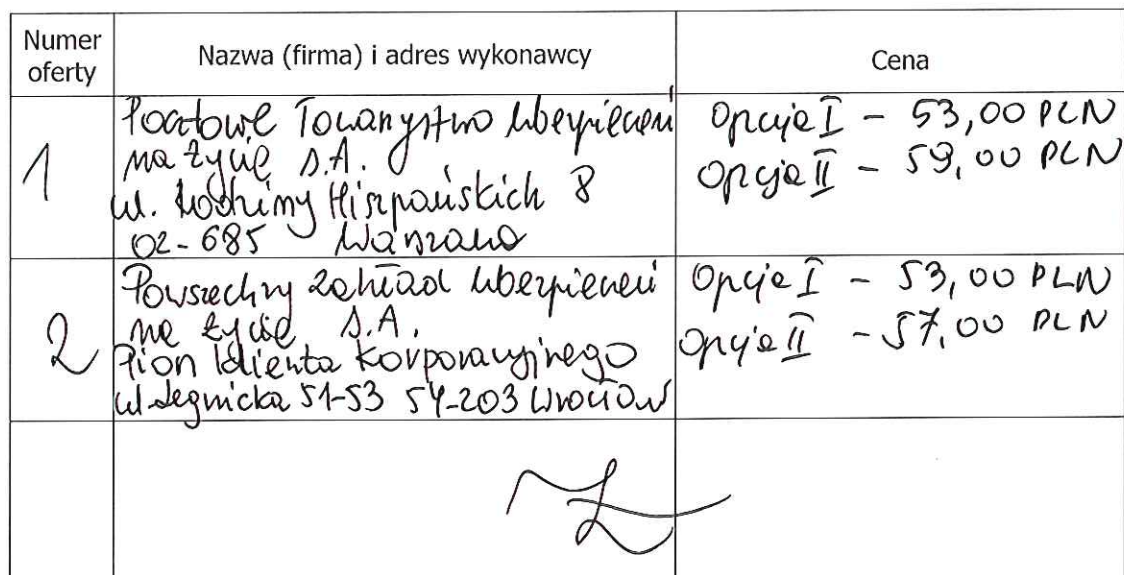 Numer oferty
Nazwa (firma) i adres wykonawcy
Cena
1
Pocztowe Towarzystwo Ubezpieczeń
na życie S.A.
ul. Rodziny Hiszpańskich 8
02-685 Warszawa
Opcja I - 53,00 PLN
Opcja II - 59,00 PLN
2
Powszechny Zakład Ubezpieczeń
na życie S.A.
Pion Klienta Korporacyjnego
ul Legnicka 51-53 54-203 Wrocław
Opcja I - 53,00 PLN
Opcja II - 57,00 PLN